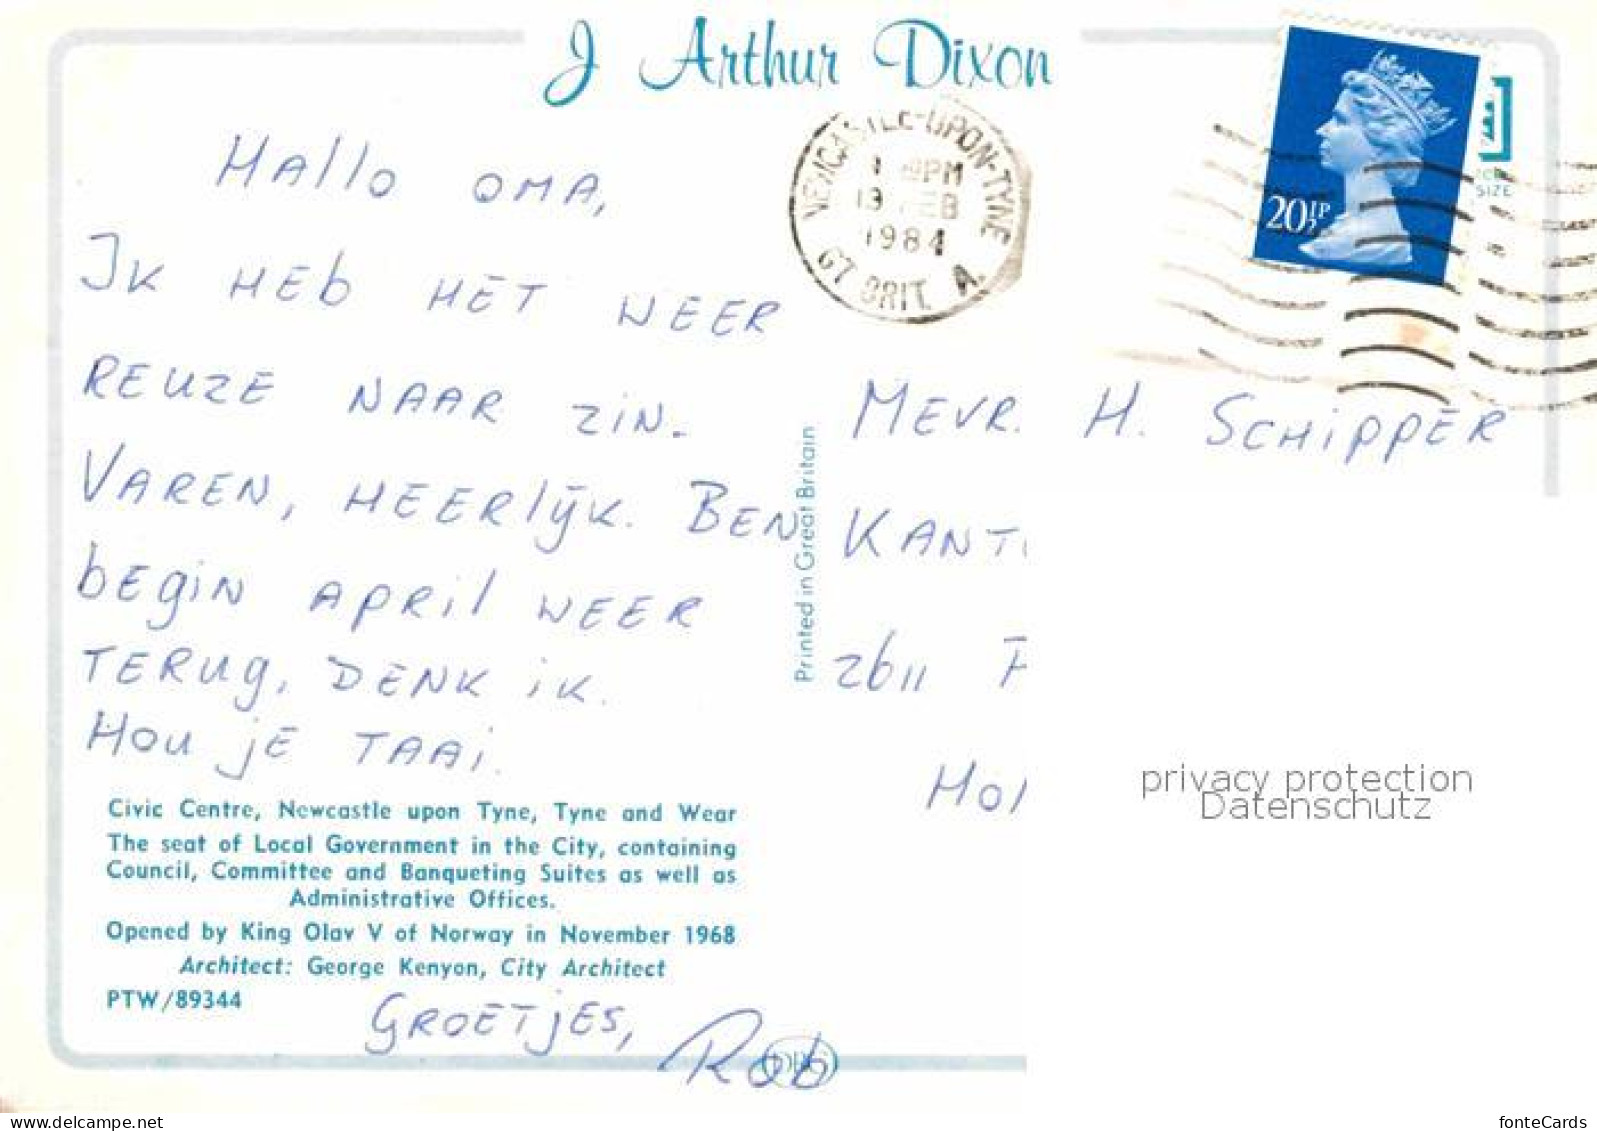 J Arthur Dixon
NEWCASTLE-UPON-TYNE
PM
1984
GT BRIT. A.
20½P
SIZE
HALLO OMA,
IK HEB HET WEER
REUZE NAAR ZIN.
VAREN, HEERLIJK. BEN
BEGIN APRIL WEER
TERUG, DENK IK.
HOU JE TAAI.
Civic Centre, Newcastle upon Tyne, Tyne and Wear
The seat of Local Government in the City, containing
Council, Committee and Banqueting Suites as well as
Administrative Offices.
Opened by King Olav V of Norway in November 1968
Architect: George Kenyon, City Architect
PTW/89344
GROETJES,
ROB
Printed in Great Britain
MEVR. H. SCHIPPER
KANT
2611
HOL
privacy protection
Datenschutz
www.delcampe.net
fonteCards